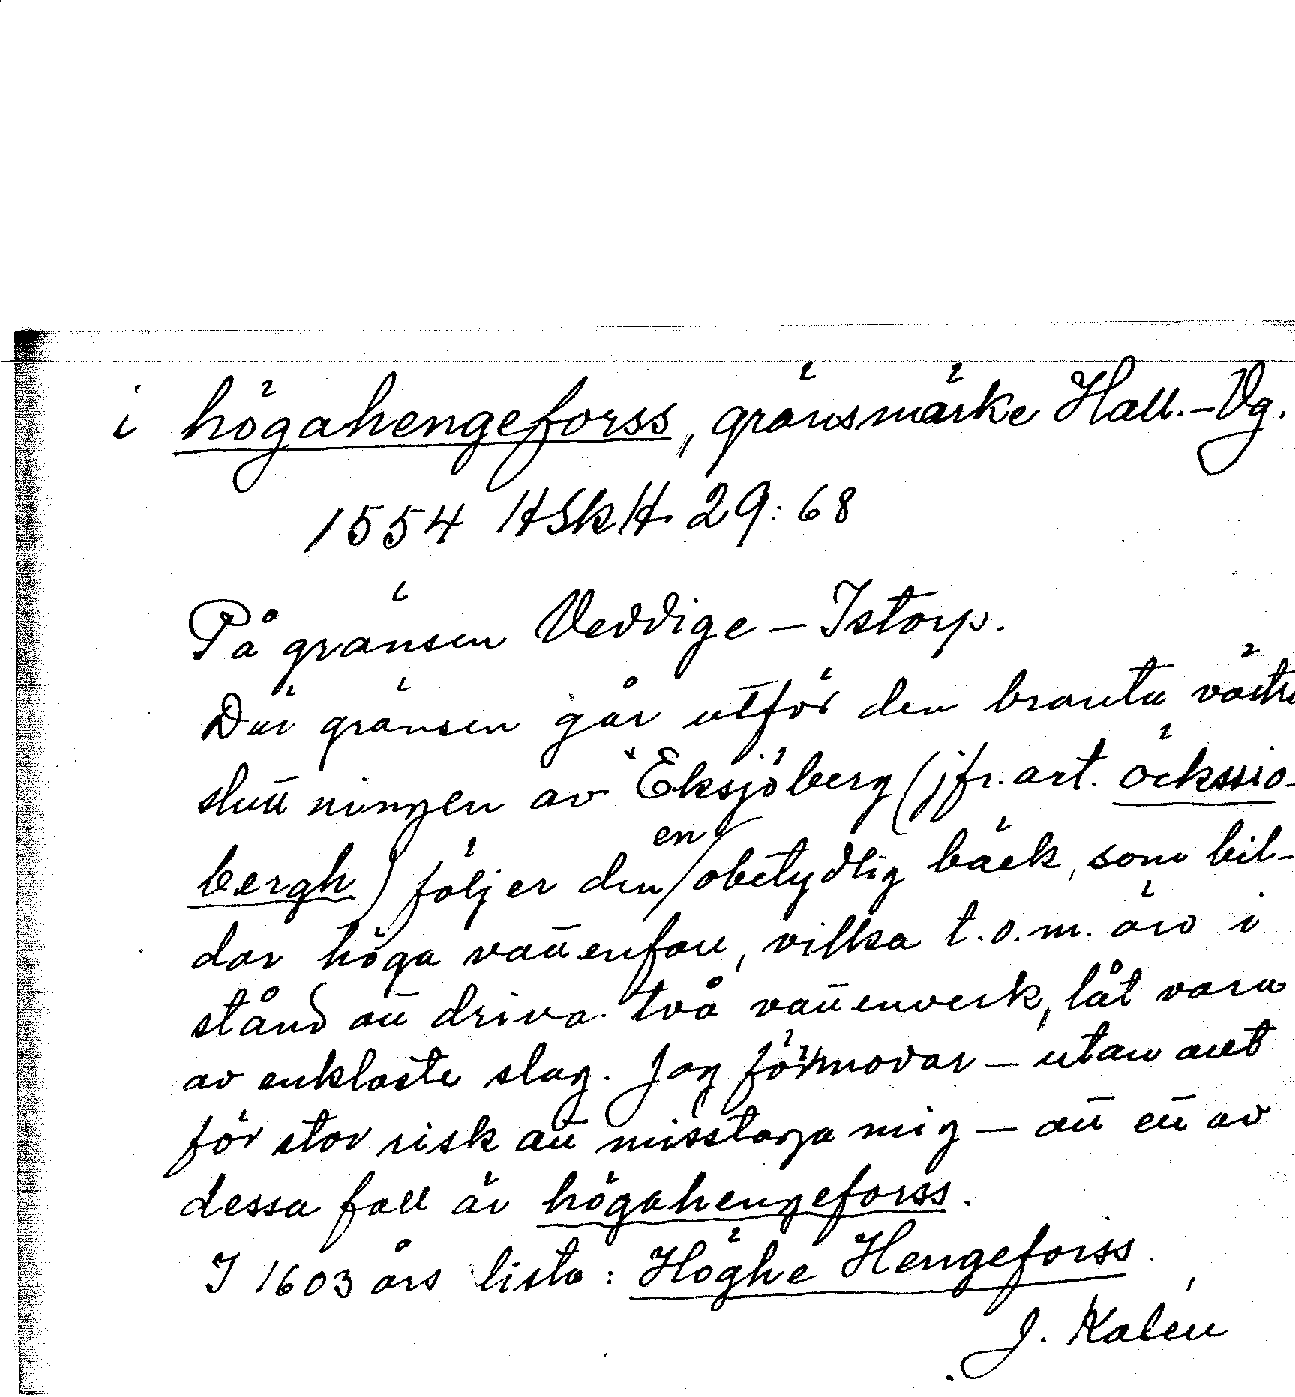 i högahengeforss, gränsmärke Hall.-Vg.
1554 HSkH. 29:68
På gränsen Veddige – Istorp.
Där gränsen går utför den branta västra
sluttningen av Eksjöberg (jfr. art. öckssio-
bergh) följer den en obetydlig bäck, som bil-
dar höga vattenfall, vilka t.o.m. äro i
stånd att driva två vattenverk, låt vara
av enklaste slag. Jag förmodar – utan allt
för stor risk att misstaga mig – att ett av
dessa fall är högahengeforss.
I 1603 års lista: Höghe Hengeforss.
J. Kalén